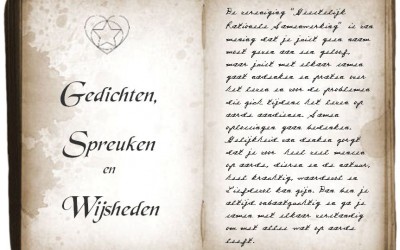 Gedichten,
Spreuken
en
Wijsheden
De vereniging "Geestelijk
Rationele Samenwerking" is van
mening dat je juist geen naam
moet geven aan een geloof,
maar juist met elkaar samen
gaat nadenken en praten over
het leven en over de problemen
die zich tijdens het leven op
aarde aandienen. Samen
oplossingen gaan bedenken.
Gelijkheid van denken zorgt
dat je voor heel veel mensen
op aarde, dieren en de natuur,
heel krachtig, waardevol en
Liefdevol kan zijn. Dan ben je
altijd onbaatzuchtig en ga je
samen met elkaar verstandig
om met alles wat op aarde
leeft.